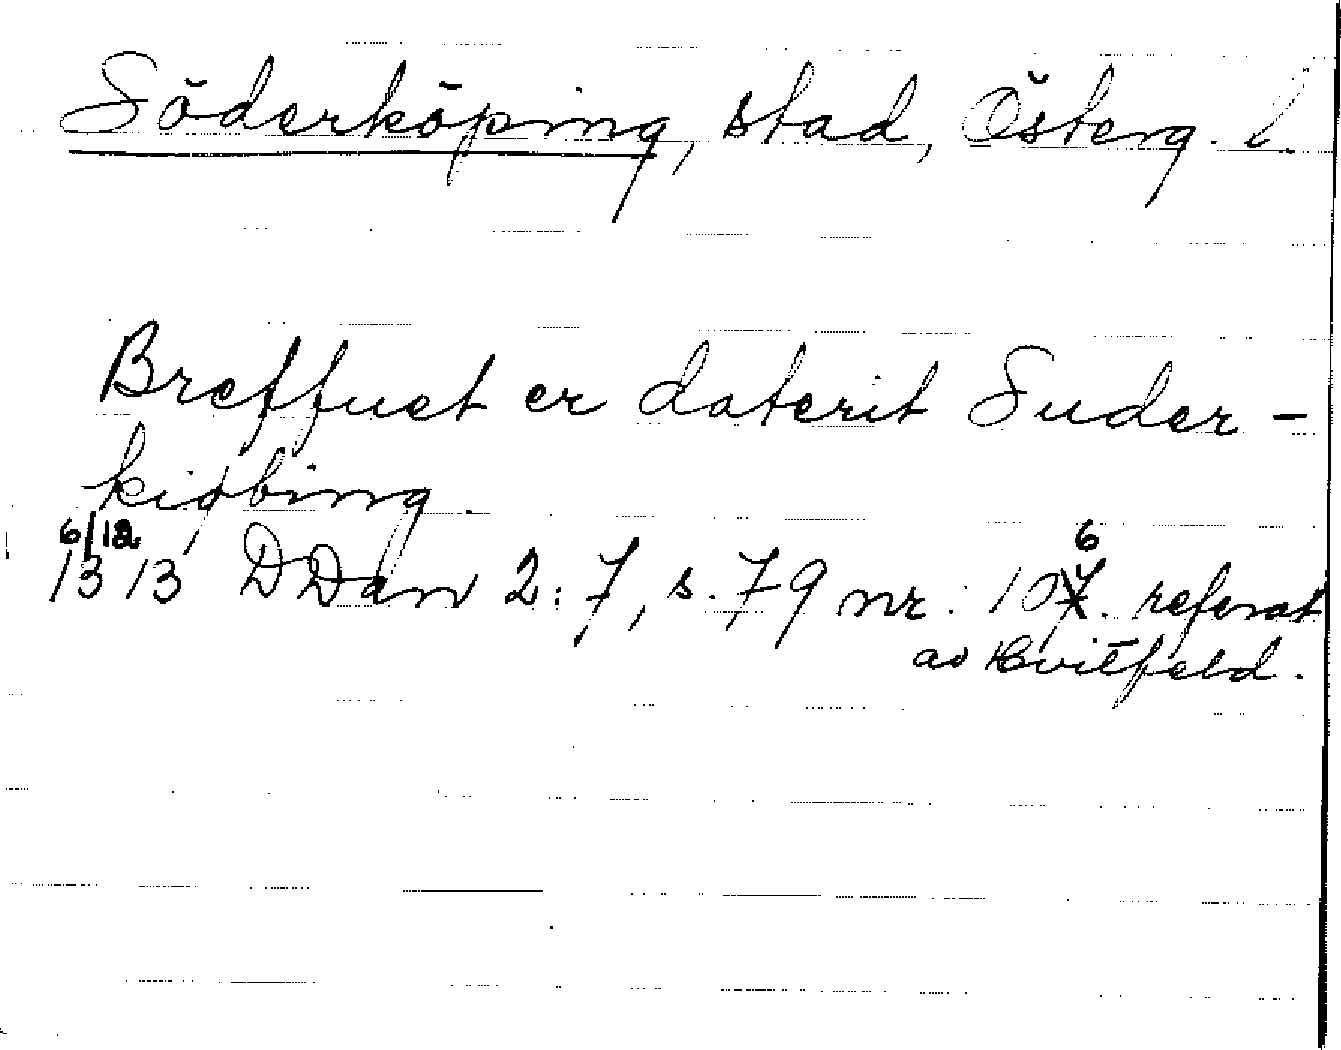 Söderköping, stad, Österg. l.
Breffuet er daterit Suder-
kiøbing.
6/12
1313 DDan 2:7, s. 79 nr. 106. referat
av Hvitfeld.